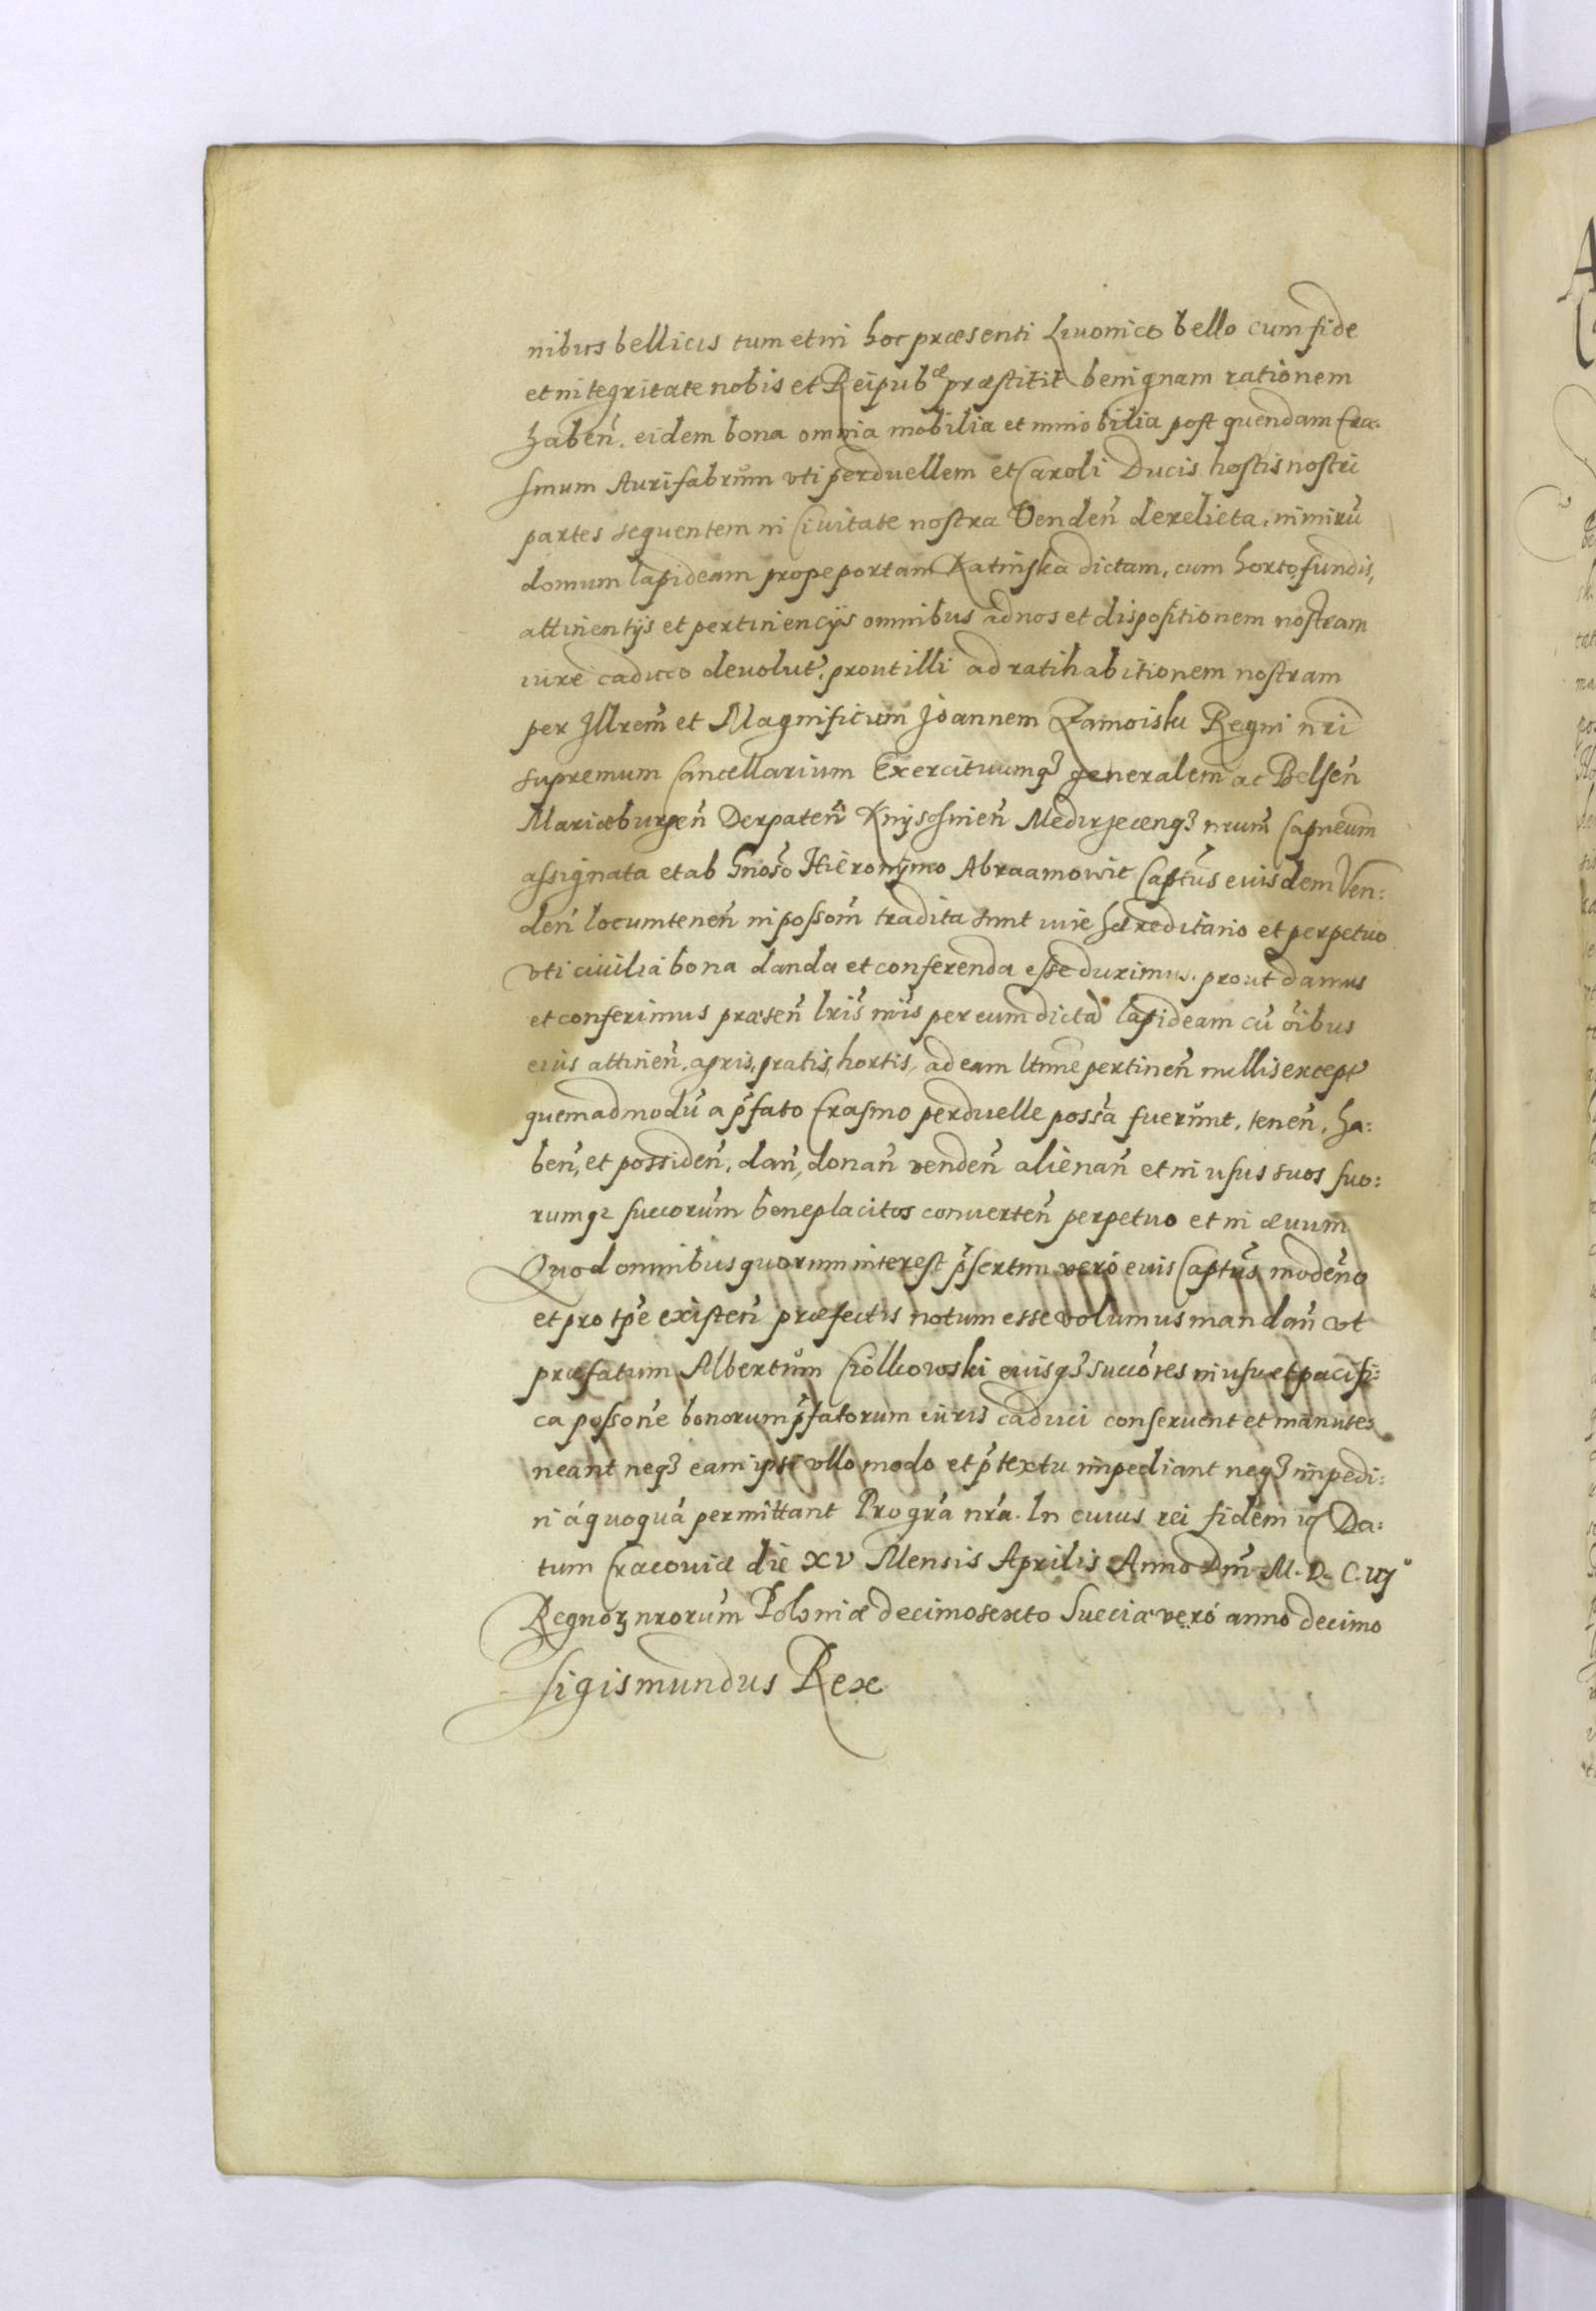 nibus bellicis tum et in hoc præsenti Liuonico bello cum fide
et integritate nobis et Reipubæ præstitit benignam rationem
haben̄. eidem bona omnia mobilia et immobilia post quendam Era:
smum Aurifabrum vti perduellem et Caroli Ducis hostis nostri
partes sequentem in Ciuitate nostra Venden̄ derelicta, nimirū
domum lapideam prope portam Katinska dictam, cum horto, fundis,
attinentijs et pertinencijs omnibus ad nos et dispositionem nostram
iure caduco deuolut̄, prout illi ad ratihabitionem nostram
per Illrem̄ et Magnificum Joannem Zamoiski Regni nr̄i
supremum Cancellarium Exercituumq3 generalem ac Belsen̄
Mariæburgen̄ Derpaten̄ Knijschinen̄ Medirzecenq3 nrum̄ Capneum̄
assignata et ab Gnoso̅ Hieronymo Abraamowic Captus̄ eiusdem Ven:
den̄ locumtenen̄ in possom̄ tradita sunt iure hæreditario et perpetuo
vti ciuilia bona danda et conferenda esse duximus. prout damus
et conferimus præsen̄ lris̄ nris̄ per eum dictā lapideam cū oībus
eius attinen̄. agris, pratis, hortis, ad eam ltime̅ pertinen̄ nullis except̄
quemadmodū a p̄fato Erasmo perduelle possa̅ fuerunt, tenen̄, ha:
ben̄, et possiden̄, dan̄, donan̄ venden̄ alienan̄ et in usus suos suo:
rumq3 succorum̄ beneplacitos conuerten̄ perpetuo et in æuum
Quod omnibus quorum interest p̄sertim vero eius Captus̄ moderno̅
et pro tp̄e existen̄ præfectis notum esse volumus mandan̄ vt
præfatum Albertum Ciolkowski eiusq3 succores̄ in usu et pacifi:
ca possone̅ bonorum p̄fatorum iuris caduci conseruent et manute:
neant neq3 eam ipsi vllo modo et p̄textu impediant neq3 impedi:
ri á quoquā permittant Pro gra̅ nra̅. In cuius rei fidem Da:
tum Cracouiæ die XV Mensis Aprilis Anno Dm̄ M. D. C. iijº
Regnoꝝ nrorum̄ Poloniæ decimosexto Sueciæ veró anno decimo
Sigismundus Rex